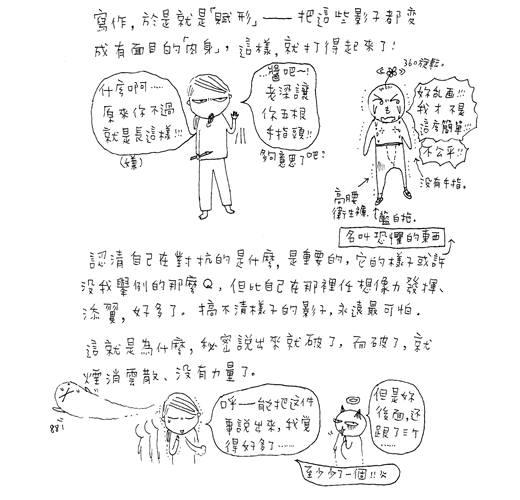 寫作，於是就是「賦形」——把這些影子都變
成有面目的「肉身」，這樣，就打得起來了！
什麼啊……
原來你不過
就是長這樣!!!
(嘆)
…醬吧～!
老梁讓
你五根
手指頭!!
夠意思了吧?
360旋轉。
妳亂画!!!
我才不是
這麼簡單!!!
不公平!!!
沒有手指。
高腰
衛生褲。
藍白拖。
名叫恐懼的東西
認清自己在對抗的是什麼，是重要的，它的樣子或許
沒我舉例的那麼Q，但比自己在那裡任想像力發揮、
添翼，好多了。搞不清樣子的影子，永遠最可怕。
這就是為什麼，秘密說出來就破了，而破了，就
煙消雲散、沒有力量了。
88!
呼——能把这件
事說出來，我覺
得好多了……
但是妳
後面，还
跟了三ケ
……
至少少了一個!!